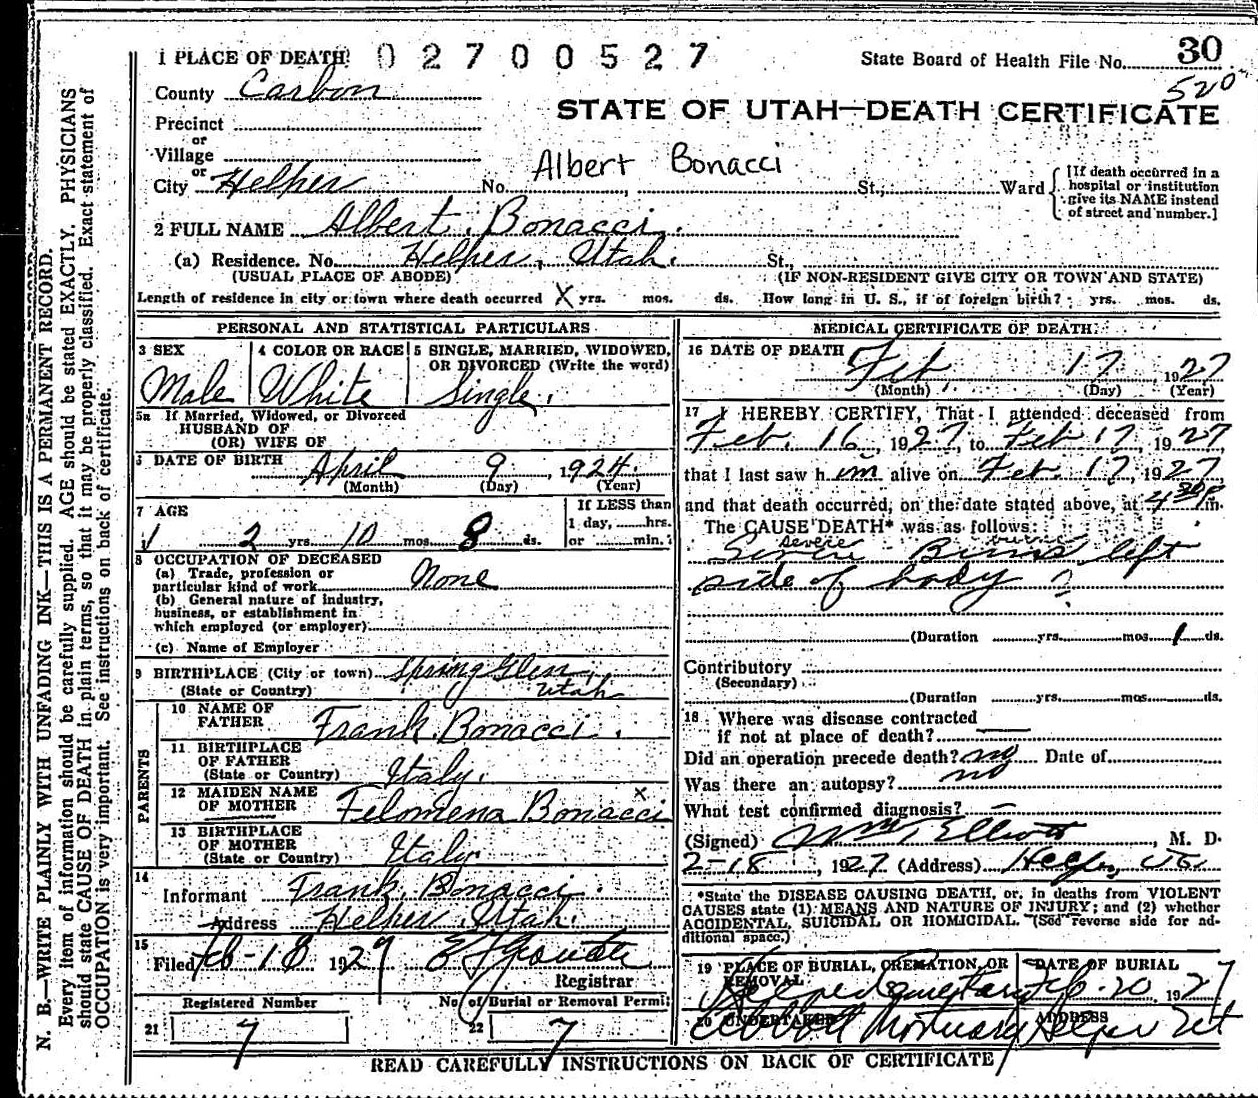 1 PLACE OF DEATH 0 2 7 0 0 5 2 7 State Board of Health File No. 30
520
County Carbon
STATE OF UTAH—DEATH CERTIFICATE
Precinct
or
Village
or
Albert Bonacci
City Helper No. St., Ward
[If death occurred in a
hospital or institution
give its NAME instead
of street and number.]
2 FULL NAME Albert Bonacci.
(a) Residence. No. Helper, Utah. St.,
(USUAL PLACE OF ABODE) (IF NON-RESIDENT GIVE CITY OR TOWN AND STATE)
Length of residence in city or town where death occurred X yrs. mos. ds. How long in U. S., if of foreign birth? yrs. mos. ds.
PERSONAL AND STATISTICAL PARTICULARS
3 SEX 4 COLOR OR RACE 5 SINGLE, MARRIED, WIDOWED,
OR DIVORCED (Write the word)
Male White Single.
5a If Married, Widowed, or Divorced
HUSBAND OF
(OR) WIFE OF
6 DATE OF BIRTH April 9, 1924.
(Month) (Day) (Year)
7 AGE If LESS than
1 day, hrs.
2 yrs. 10 mos. 8 ds. or min.
8 OCCUPATION OF DECEASED
(a) Trade, profession or
particular kind of work None
(b) General nature of industry,
business, or establishment in
which employed (or employer)
(c) Name of Employer
9 BIRTHPLACE (City or town) Spring Glen
(State or Country) Utah
PARENTS
10 NAME OF
FATHER Frank Bonacci.
11 BIRTHPLACE
OF FATHER
(State or Country) Italy.
12 MAIDEN NAME X
OF MOTHER Filomena Bonacci
13 BIRTHPLACE
OF MOTHER
(State or Country) Italy
14
Informant Frank Bonacci.
Address Helper Utah.
15
Filed Feb-18 1927
Registrar
Registered Number No. of Burial or Removal Permit
21 7 22 7
MEDICAL CERTIFICATE OF DEATH
16 DATE OF DEATH Feb. 17 1927
(Month) (Day) (Year)
17 I HEREBY CERTIFY, That I attended deceased from
Feb. 16, 1927, to Feb 17, 1927
that I last saw h im alive on Feb. 17, 1927,
and that death occurred, on the date stated above, at 4 30 P m.
The CAUSE DEATH* was as follows:
severe burns
Severe Burns left
side of body ?
(Duration yrs. mos. 1 ds.
Contributory
(Secondary)
(Duration yrs. mos. ds.
18 Where was disease contracted
if not at place of death? —
Did an operation precede death? no Date of
Was there an autopsy? no
What test confirmed diagnosis? —
(Signed) Wm. Elliott, M. D.
2-18, 1927 (Address) Helper, Ut.
*State the DISEASE CAUSING DEATH, or, in deaths from VIOLENT
CAUSES state (1) MEANS AND NATURE OF INJURY; and (2) whether
ACCIDENTAL, SUICIDAL OR HOMICIDAL. (See reverse side for ad-
ditional space.)
19 PLACE OF BURIAL, CREMATION, OR DATE OF BURIAL
REMOVAL
Cemetary Feb-20 1927
20 UNDERTAKER ADDRESS
Mortuary Helper Ut
READ CAREFULLY INSTRUCTIONS ON BACK OF CERTIFICATE
N. B.—WRITE PLAINLY WITH UNFADING INK—THIS IS A PERMANENT RECORD.
Every item of information should be carefully supplied. AGE should be stated EXACTLY. PHYSICIANS
should state CAUSE OF DEATH in plain terms, so that it may be properly classified. Exact statement of
OCCUPATION is very important. See instructions on back of certificate.